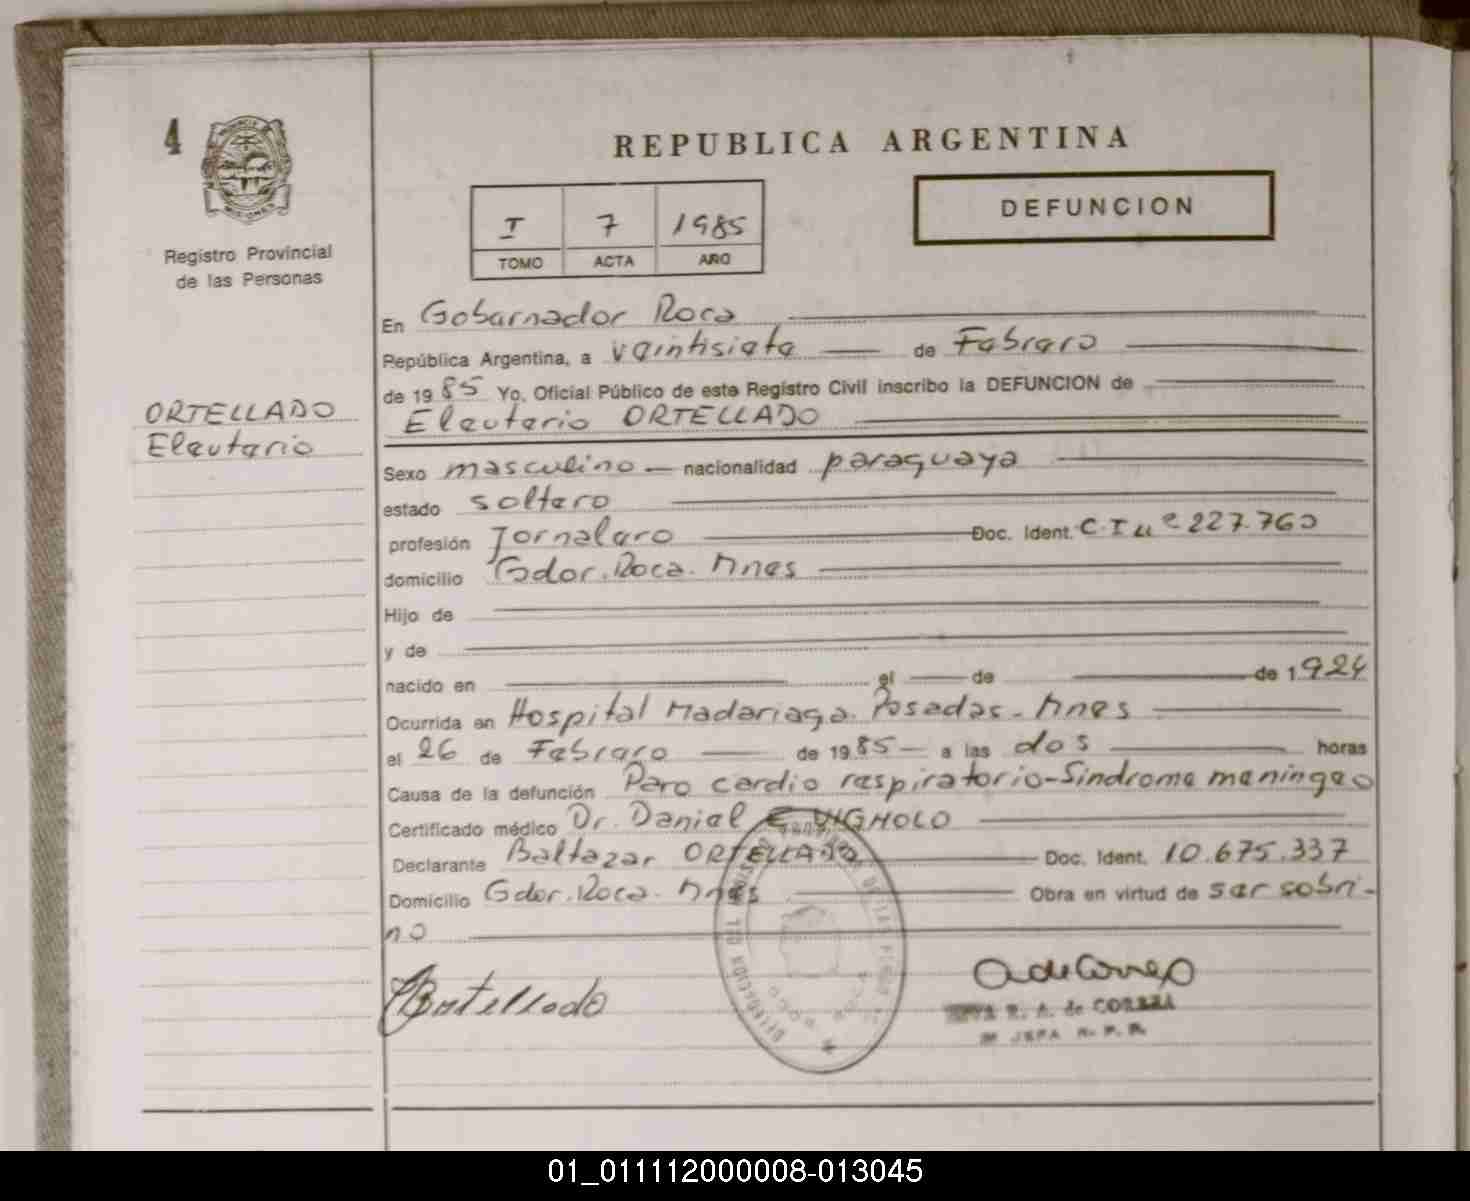 4
REPUBLICA ARGENTINA
DEFUNCION
I 7 1985
TOMO ACTA AÑO
Registro Provincial
de las Personas
ORTELLADO
Eleuterio
En Gobernador Roca
República Argentina, a veintisiete de Febrero
de 1985 Yo, Oficial Público de este Registro Civil inscribo la DEFUNCION de
Eleuterio ORTELLADO
Sexo masculino nacionalidad paraguaya
estado soltero
profesión Jornalero Doc. Ident. C.I nº 227.760
domicilio Gdor. Roca. Mnes
Hijo de
y de
nacido en el de de 1924
Ocurrida en Hospital Madariaga. Posadas - Mnes
el 26 de Febrero de 1985 a las dos horas
Causa de la defunción Paro cardio respiratorio - Sindrome meningeo
Certificado médico Dr. Daniel E VIGNOLO
Declarante Baltazar ORTELLADO Doc. Ident. 10.675.337
Domicilio Gdor. Roca. Mnes Obra en virtud de ser sobri-
no
Ortellado
R. A. de CORREA
JEFA R. P. P.
01_011112000008-013045